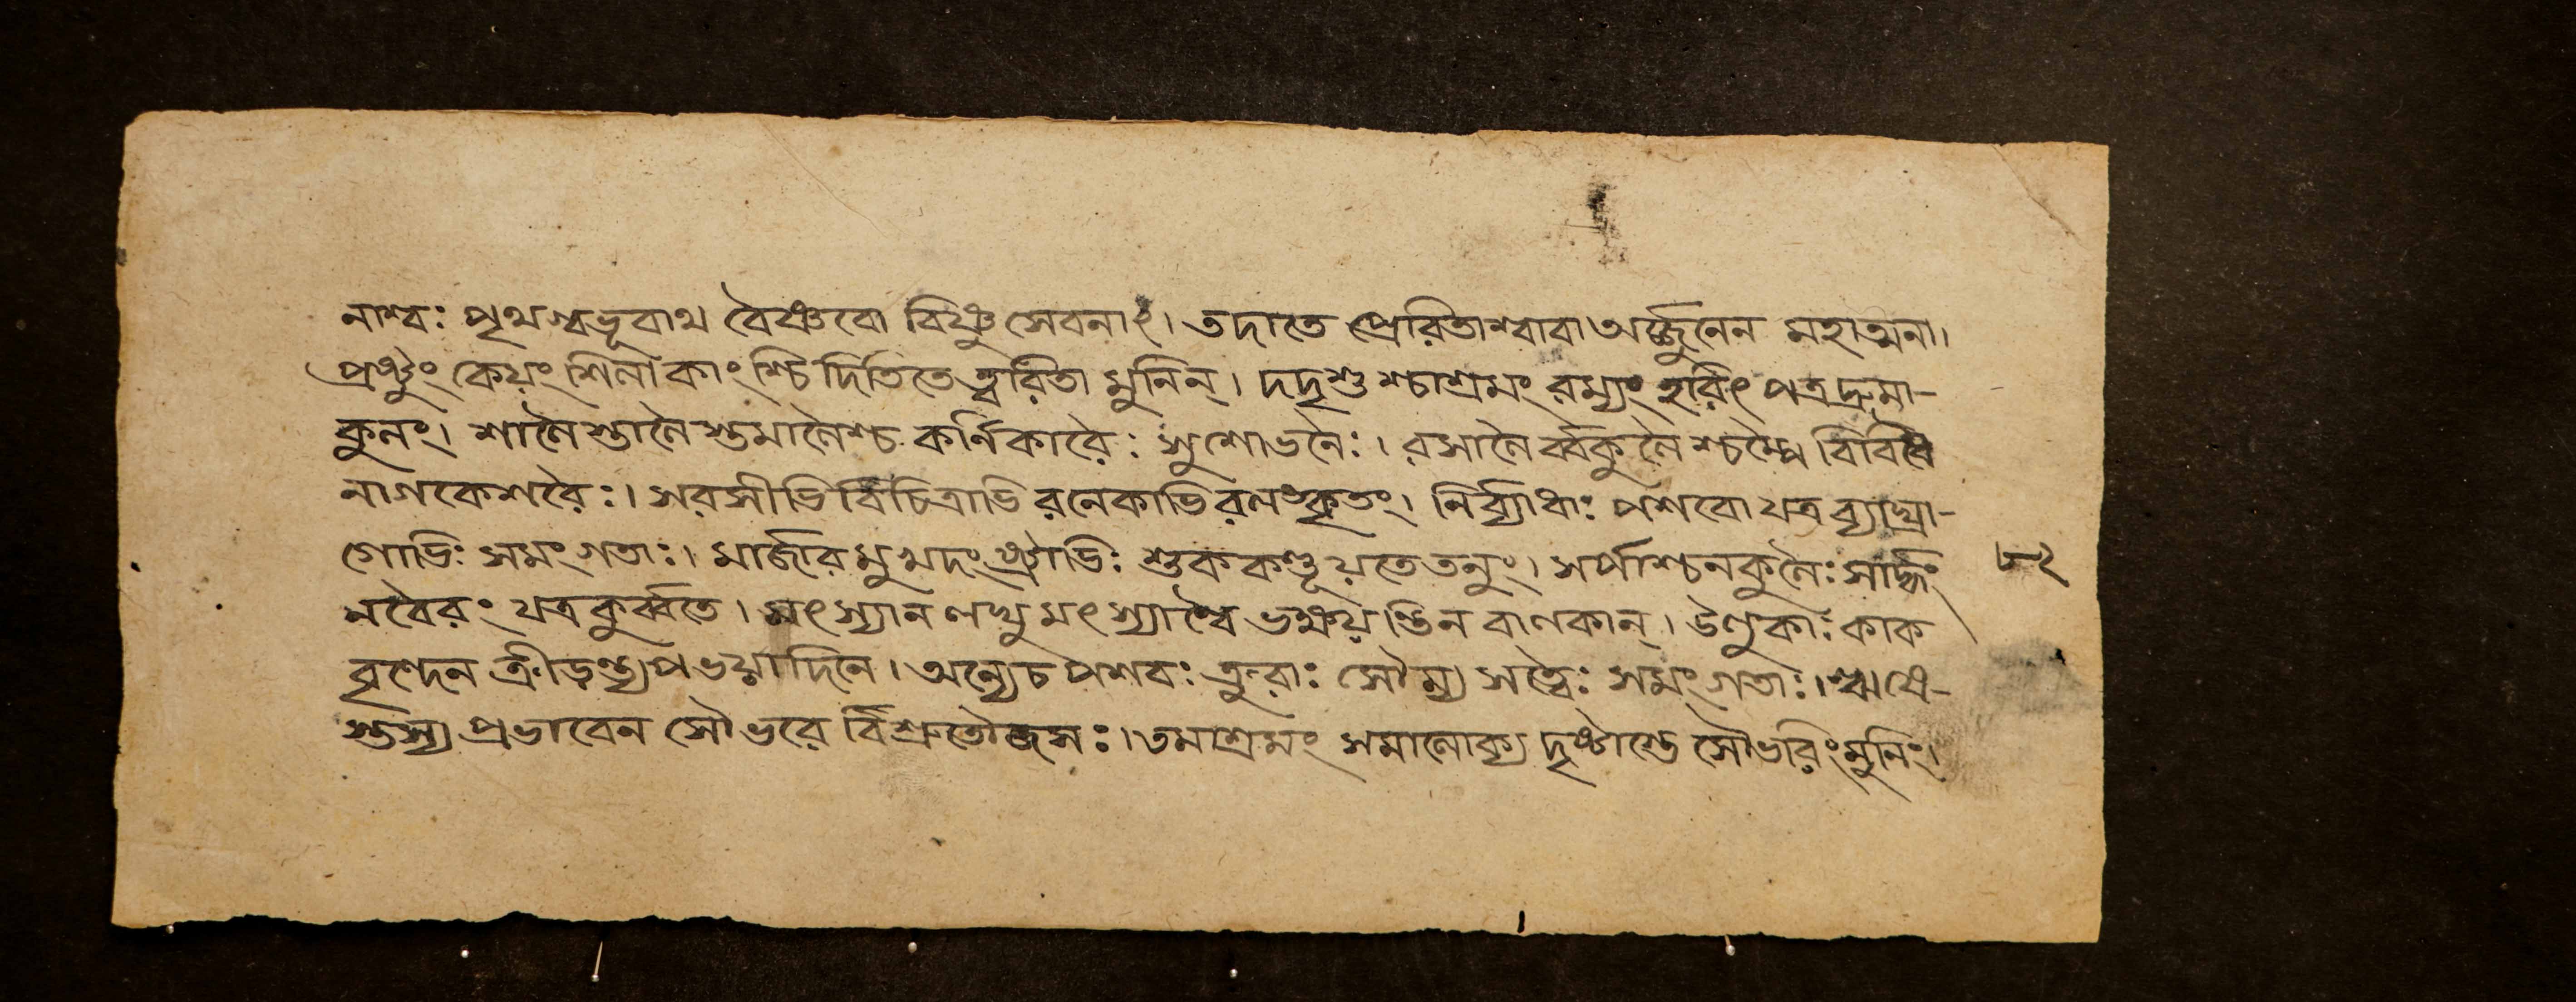 নাশ্বঃ পৃথগ্বভূবাথ বৈষ্ণবো বিষ্ণুসেবনাৎ। তদাতে প্রেরিতাশ্বাবা অর্জ্জুনেন মহাত্মনা।
প্রষ্টুং কেয়ং শিলা কাংশ্চিদিতিতে ত্বরিতা মুনিন্। দদৃশুশ্চাশ্রমং রম্যং হরিৎ পত্রদ্রুমা-
কুলং। শালৈস্তালৈস্তমালৈশ্চ কর্নিকারৈঃ সুশোভনৈঃ। রসালৈর্ব্বকুলৈশ্চম্পে বিবিধৈ
নাগকেশরৈঃ। সরসীভির্বিচিত্রাভিরনেকাভিরলঙ্কৃতং। নির্ব্যাধাঃ পশবো যত্র ব্যাঘ্রা-
গোভিঃ সমং গতাঃ। মার্জার মুখদংষ্ট্রাভিঃ শুক কণ্ডূয়তে তনুং। সর্পাশ্চ নকুলৈঃ সার্দ্ধং
নবৈরং যত্র কুর্ব্বতে। মৎস্যান লঘু মৎস্যাশ্বৈ ভক্ষয়ন্তিন বালকান্। উলুকাঃ কাক
বৃন্দেন ক্রীড়ন্ত্যপভয়াদিনে। অন্যেচ পশবঃ ক্রুরাঃ সৌম্য সত্বৈঃ সমং গতাঃ। ঋষে-
স্তস্য প্রভাবেন সৌভরের্বিশ্রুতৌজসঃ। তমাশ্রমং সমালোক্য দৃষ্টাস্তে সৌভরিং মুনিং।
৮২